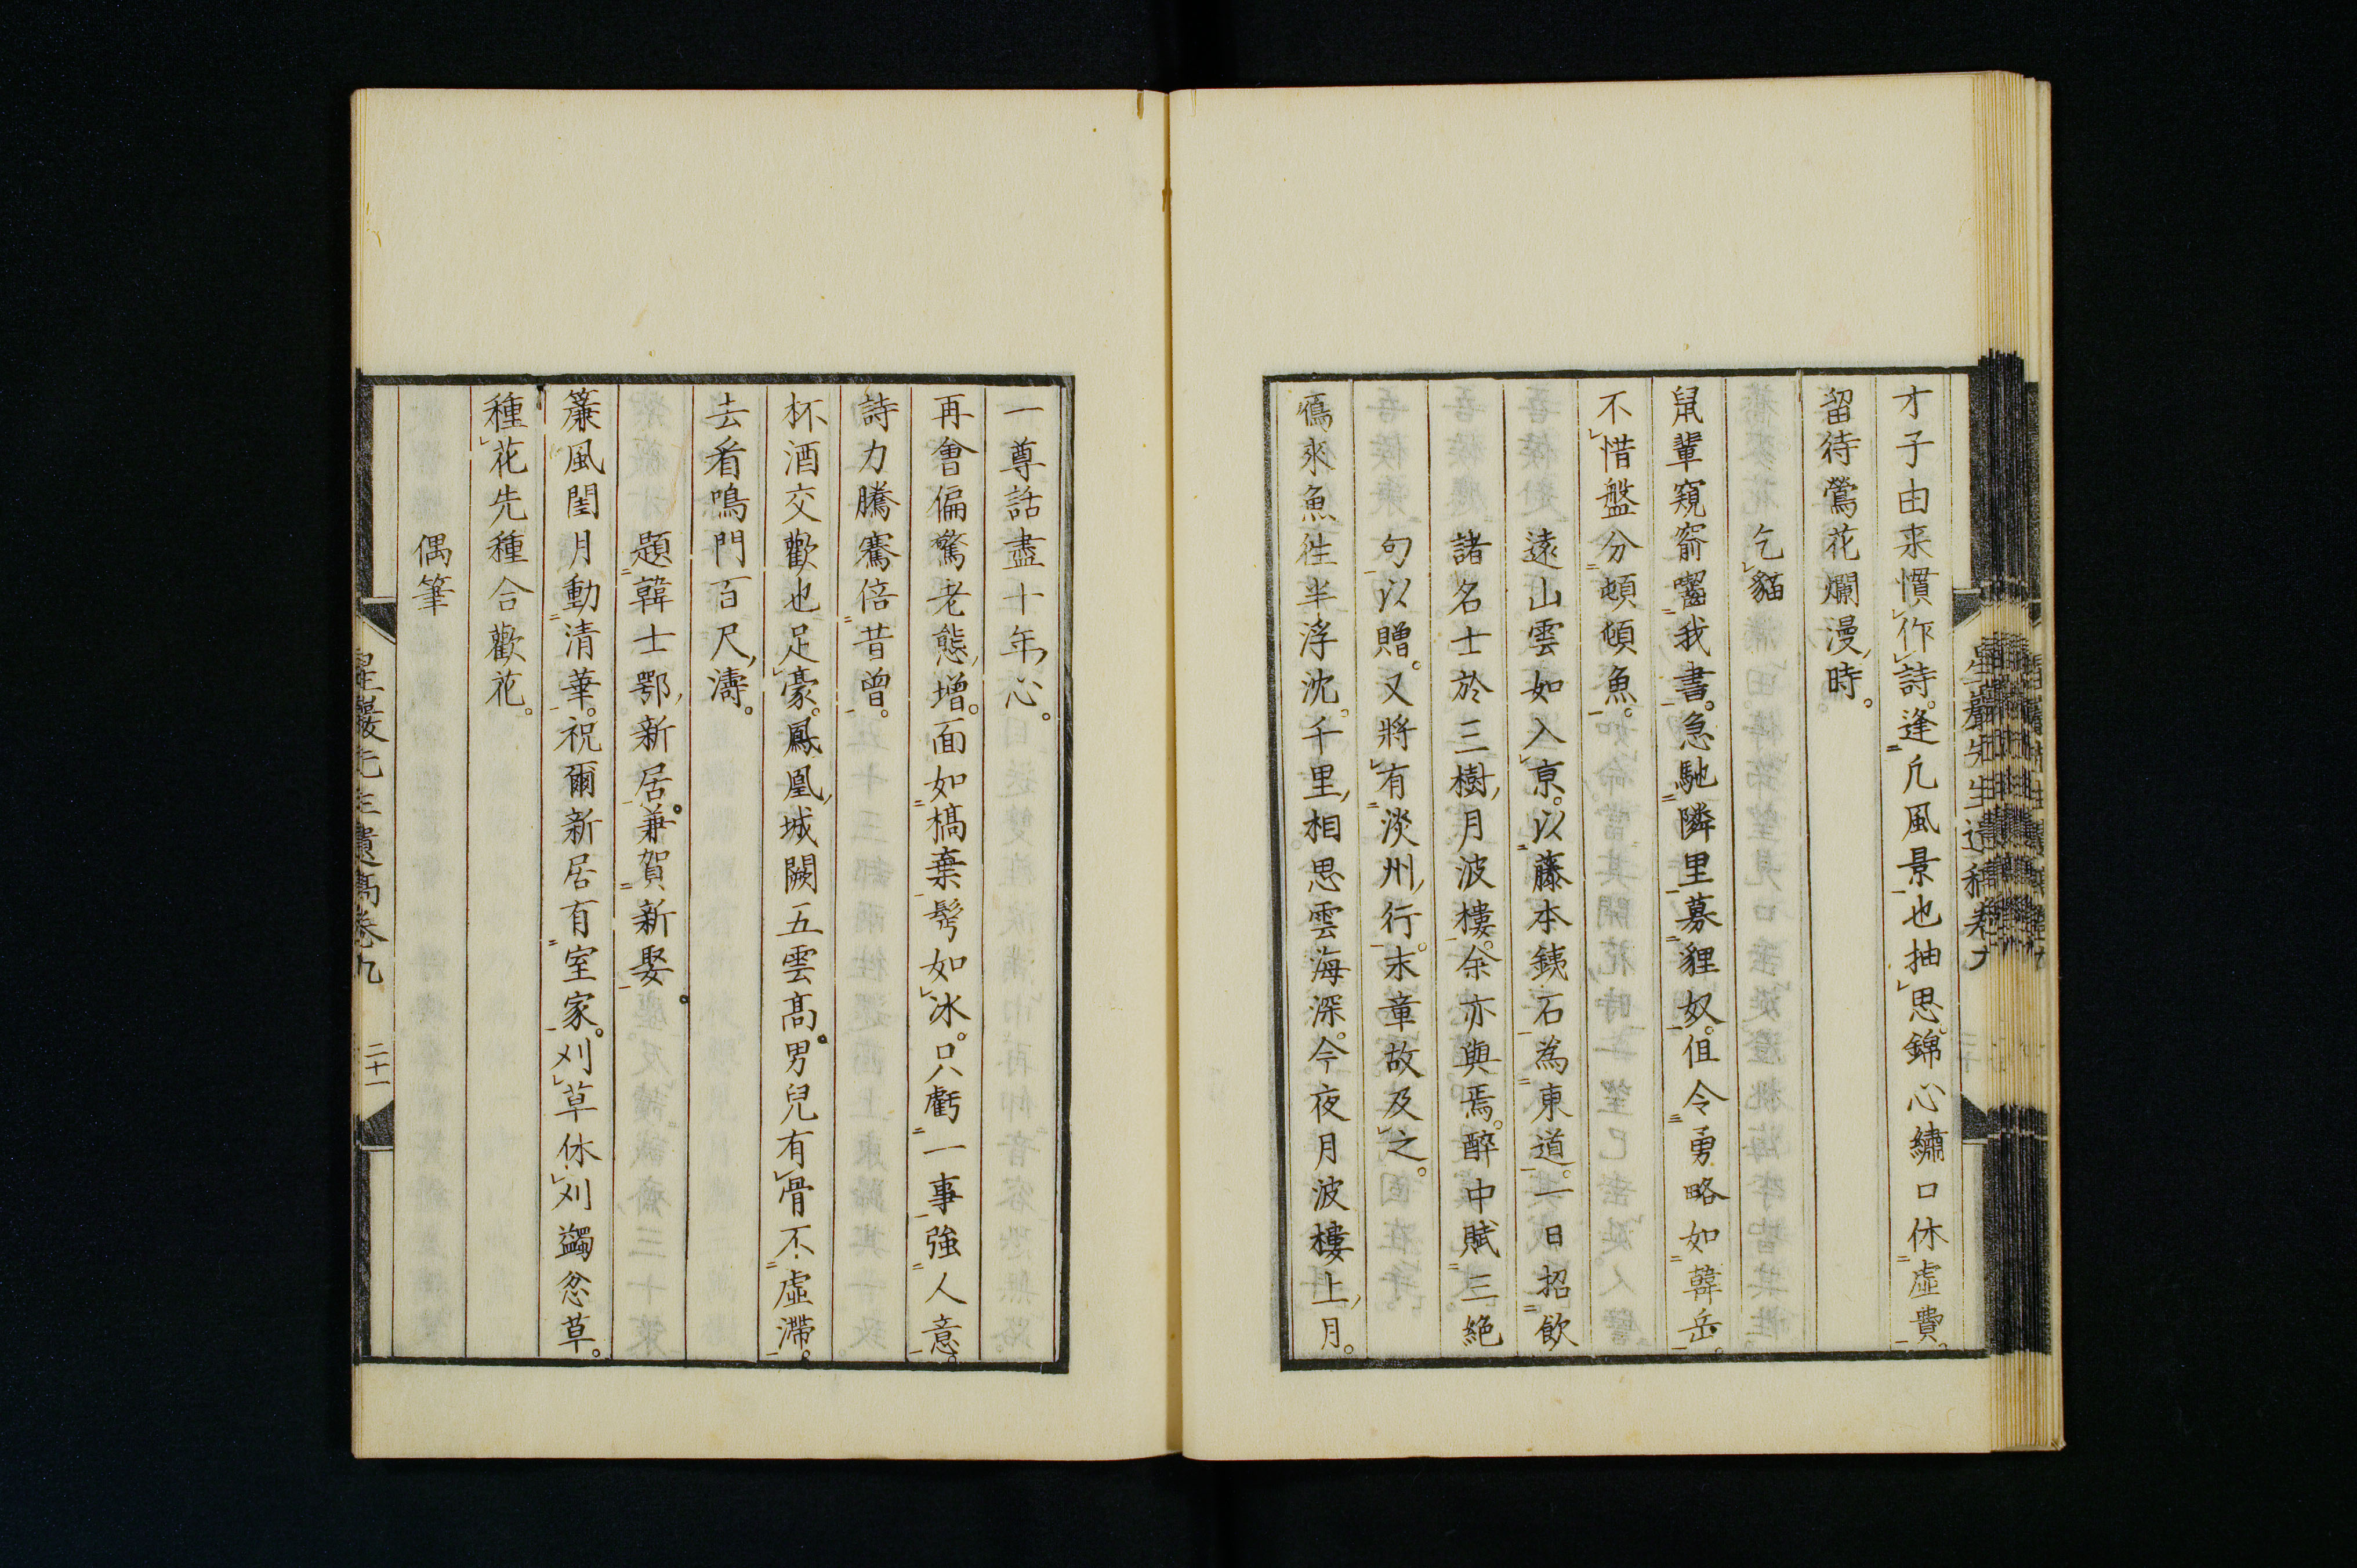 才子由来慣作詩。逢凢風景也抽思。錦心繡口休虛費。
留待鶯花爛漫時。
乞貓
鼠輩窺窬齧我書。急馳隣里募貍奴。但令勇略如韓岳。
不惜盤分頓頓魚。
遠山雲如入京。以藤本鉄石為東道。一日招飲
諸名士於三樹月波樓。余亦與焉。醉中賦三絕
句以贈。又將有淡州行。末章故及之。
鴈來魚往半浮沈。千里相思雲海深。今夜月波樓上月。
一尊話盡十年心。
再會偏驚老態增。面如槁葉髩如冰。只虧一事強人意。
詩力騰騫倍昔曾。
杯酒交歡也足豪。鳳凰城闕五雲髙。男兒有骨不虛滯。
去看鳴門百尺濤。
題韓士鄂新居。兼賀新娶。
簾風閨月動清華。祝爾新居有室家。刈草休刈蠲忿草。
種花先種合歡花。
偶筆
星巖先生遺稿卷九
二十一